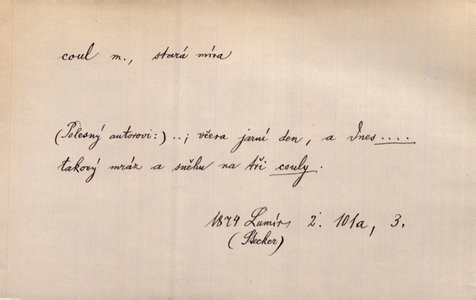 coul m., stará míra
(Polesný autorovi:) ..; včera jarní den, a dnes ....
takový mráz a sněhu na tři couly.
1874 Lumír 2. 101a, 3.
(Stecker)